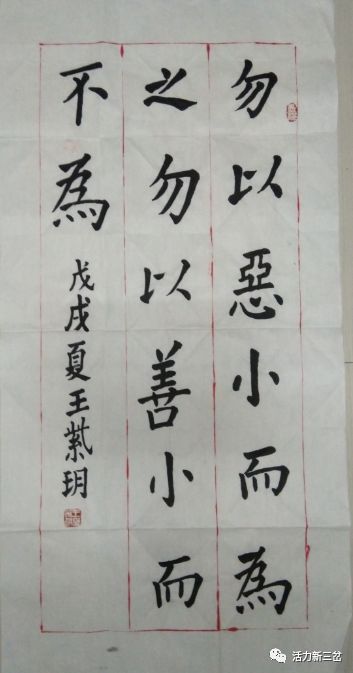 勿以惡小而為
之勿以善小而
不為
戊戌夏王紫玥
活力新三岔